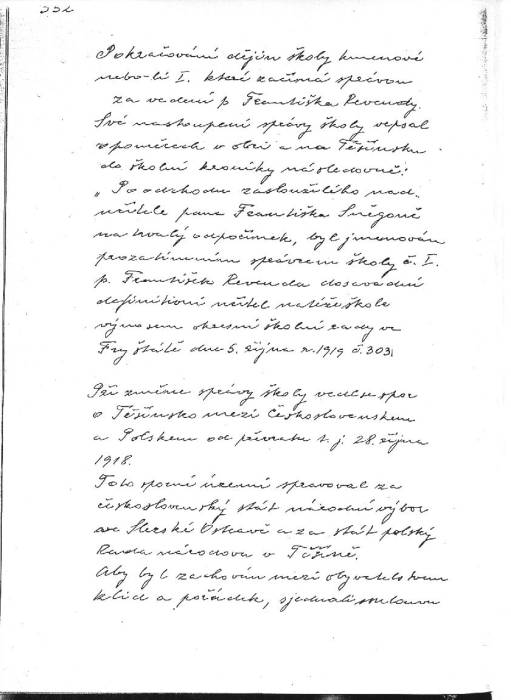 332
Pokračování dějin školy kmenové
nebo-li I. které začíná správou
za vedení p Františka Revendy.
Své nastoupení správy školy vepsal
vpoměrech v obci a na Těšínsku
do školní kroniky následovně:
„ Po odchodu zasloužilého nad-
učitele pana Františka Sněgoně
na trvalý odpočinek, byl jmenován
prozatímním správcem školy č. I.
p. František Revenda dosavadní
definitivní učitel na téže škole
výnosem okresní školní rady ve
Fryštátě dne 5. října r. 1919 č. 303
Při změně správy školy vedl se spor
o Těšínsko mezi Československem
a Polskem od převratu t. j. 28. října
1918.
Toto sporné území spravoval za
československý stát národní výbor
ve Slezské Ostravě a za stát polský
Rada národova v Těšíně.
Aby byl zachován mezi obyvatelstvem
klid a pořádek, sjednali smlouvu